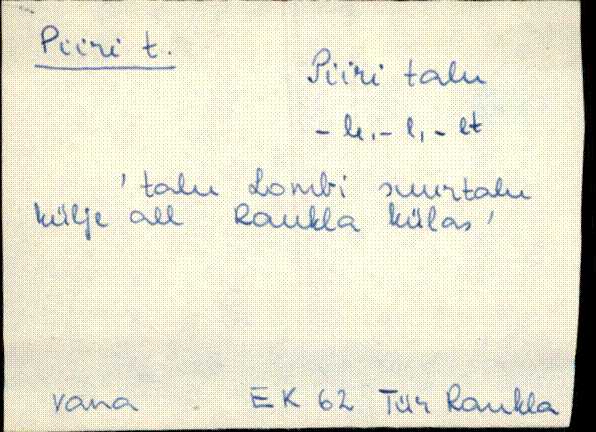 Piiri t.
Piiri talu
-le, -l, -lt
'talu Lombi suurtalu
külje all Raukla külas'
vana EK 62 Tür Raukla